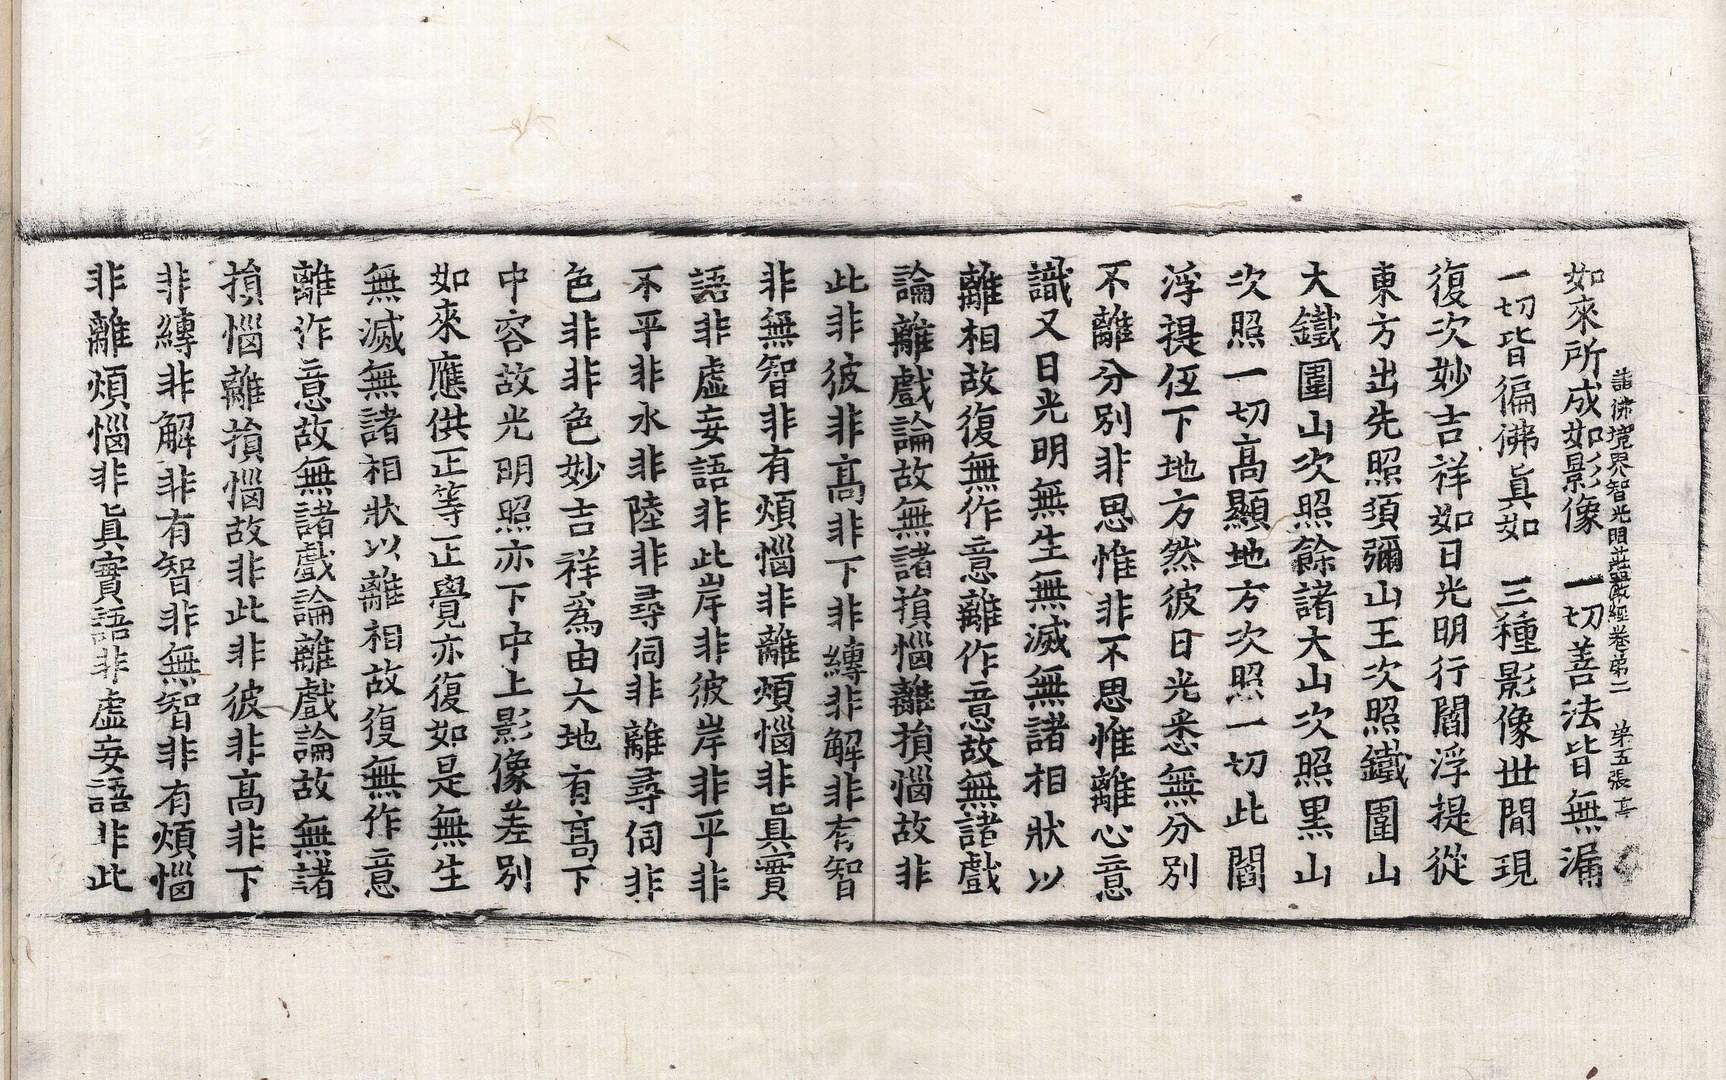 諸佛境界智光明莊嚴經卷第二　第五張　亭
如來所成如影像　一切善法皆無漏
一切皆徧佛眞如　三種影像世閒現
復次妙吉祥如日光明行閻浮提從
東方出先照須彌山王次照鐵圍山
大鐵圍山次照餘諸大山次照黑山
次照一切高顯地方次照一切此閻
浮提低下地方然彼日光悉無分別
不離分別非思惟非不思惟離心意
識又日光明無生無滅無諸相狀以
離相故復無作意離作意故無諸戲
論離戲論故無諸損惱離損惱故非
此非彼非高非下非縛非解非有智
非無智非有煩惱非離煩惱非眞實
語非虛妄語非此岸非彼岸非平非
不平非水非陸非尋伺非離尋伺非
色非非色妙吉祥爲由大地有高下
中容故光明照亦下中上影像差別
如來應供正等正覺亦復如是無生
無滅無諸相狀以離相故復無作意
離作意故無諸戲論離戲論故無諸
損惱離損惱故非此非彼非高非下
非縛非解非有智非無智非有煩惱
非離煩惱非眞實語非虛妄語非此